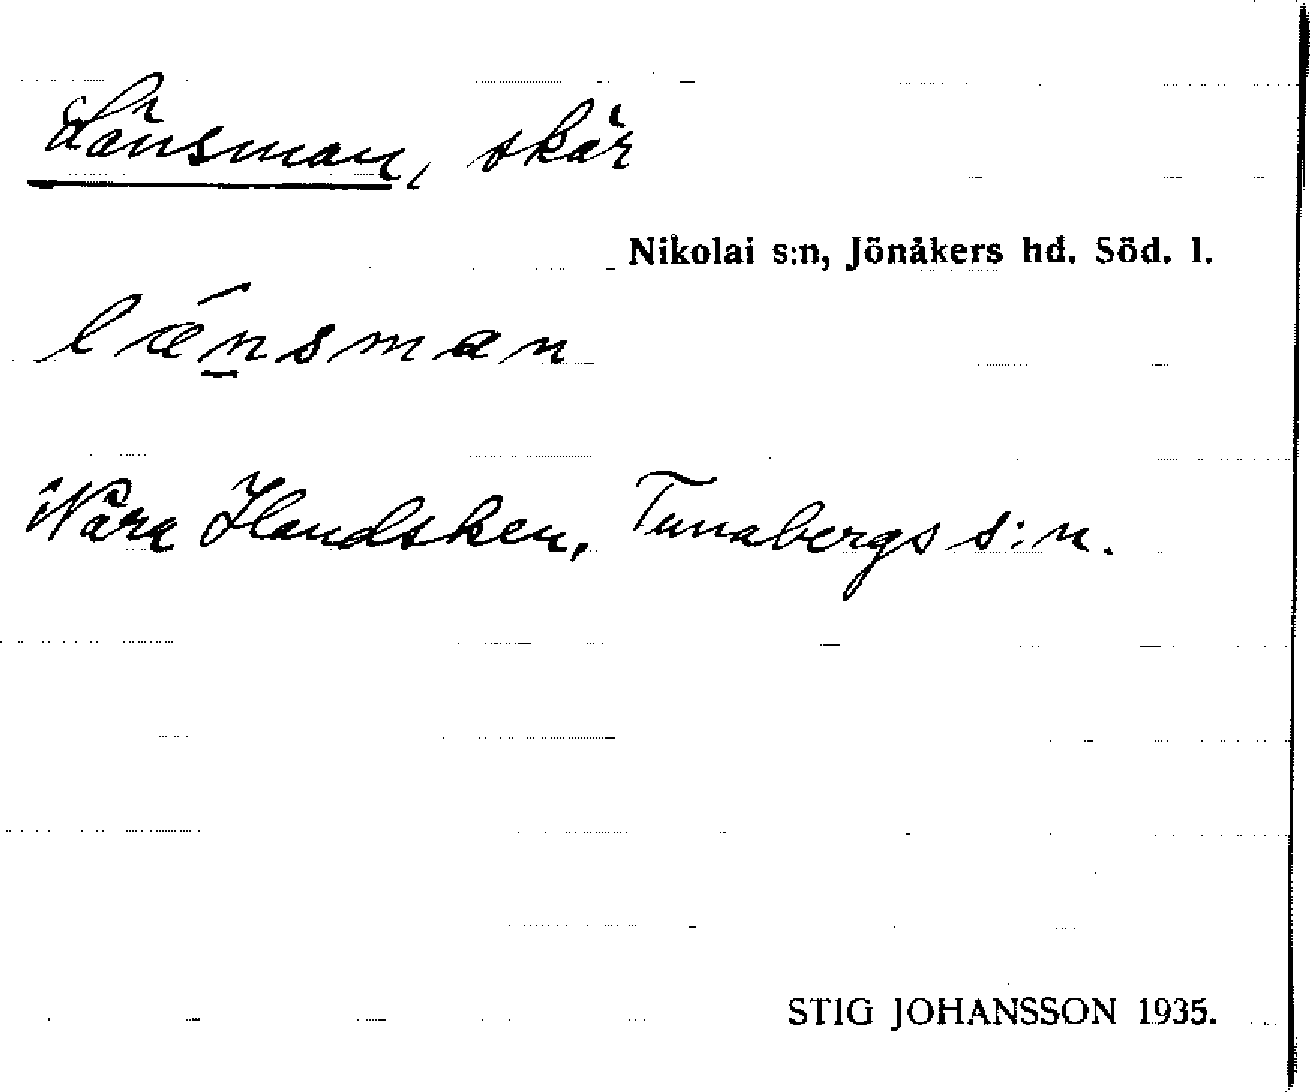 Länsman, skär
Nikolai s:n, Jönåkers hd. Söd. l.
lænsman
Nära Handsken, Tunabergs s:n.
STIG JOHANSSON 1935.